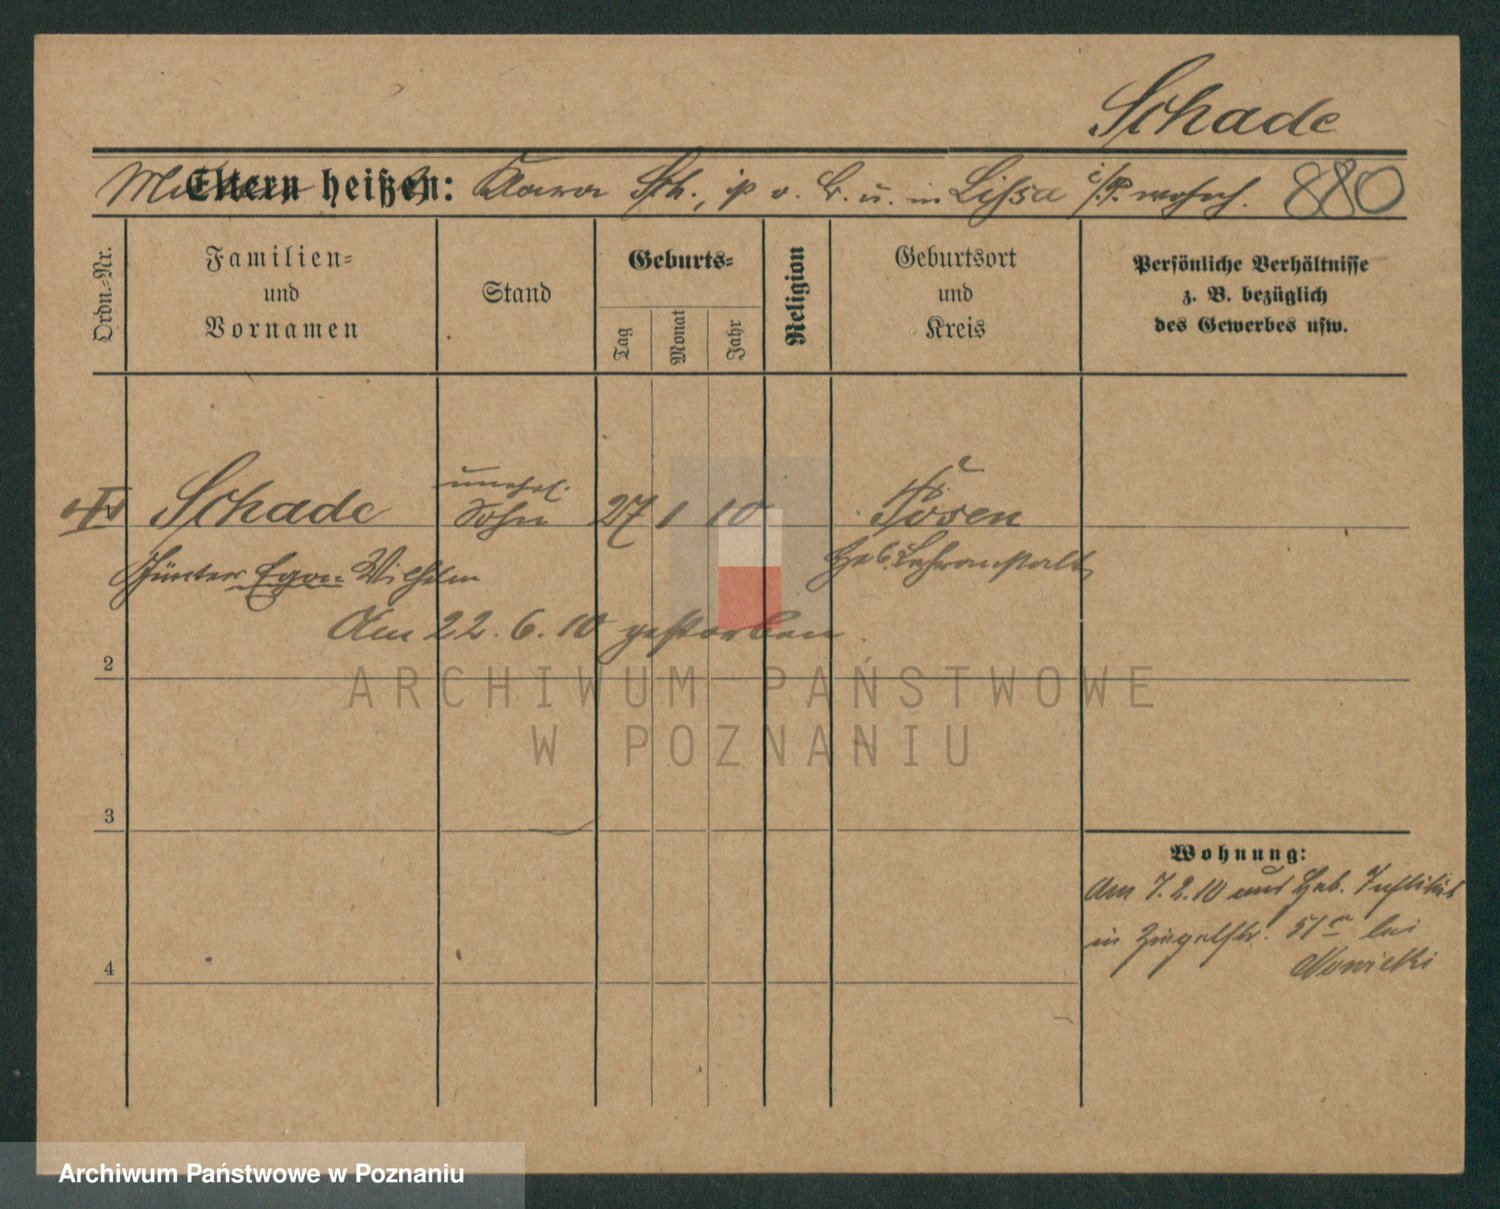 Schade
Eltern heißen: Klara Sch., u. in Lissa i/P. wohnh. 880
Ordn.=Nr.
Familien=
und
Vornamen
Stand
Geburts=
Tag
Monat
Jahr
Religion
Geburtsort
und
Kreis
Persönliche Verhältnisse
z. B. bezüglich
des Gewerbes usw.
Schade
unehel.
Sohn
27 1 10
Posen
Heb. Lehranstalt
Günter Egon Wilhelm
Am 22. 6. 10 gestorben.
2
3
4
Wohnung:
Am 7.2.10 aus Heb. Institut
in Ziegelstr. 51 bei
Nowicki
ARCHIWUM PAŃSTWOWE
W POZNANIU
Archiwum Państwowe w Poznaniu